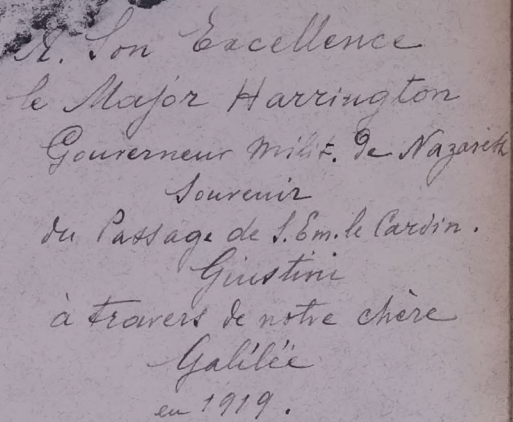 A. Son Excellence
le Major Harrington
Gouverneur Milit. de Nazareth
Souvenir
du Passage de S. Em. le Cardin.
Giustini
à travers de notre chère
Galilée
en 1919.